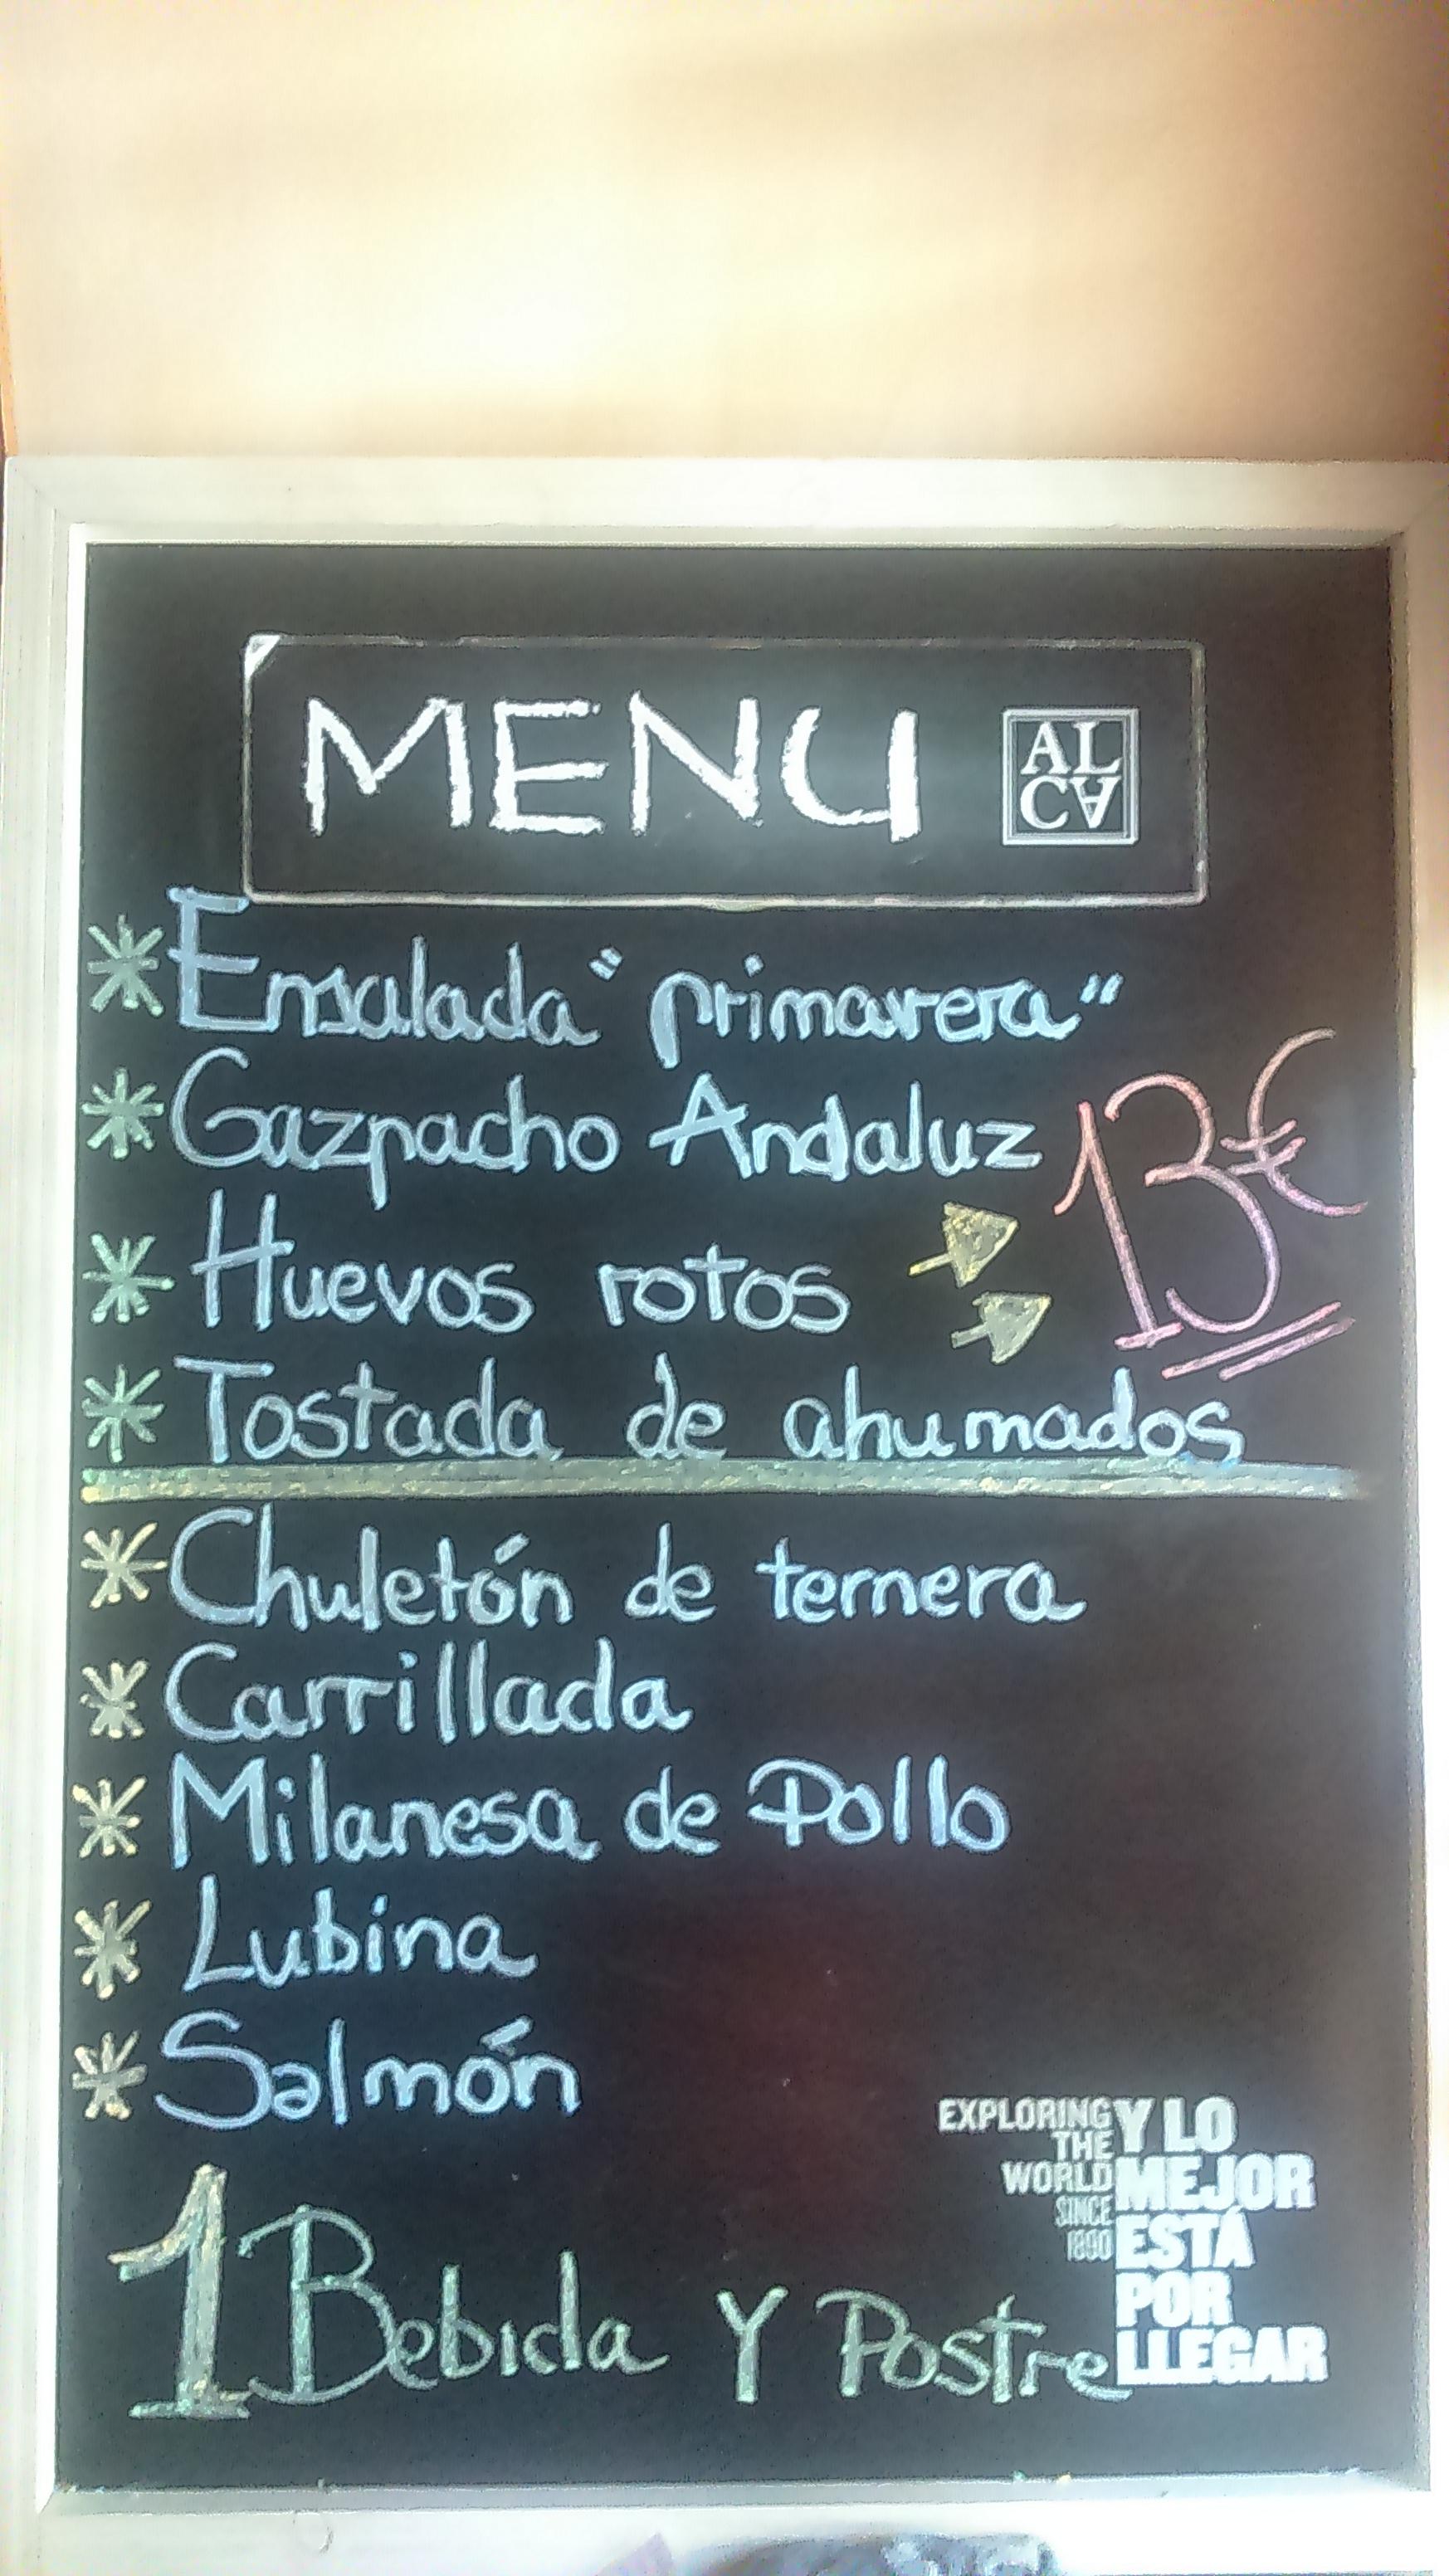 MENU
AL
CA
* Ensalada "primavera"
* Gazpacho Andaluz
13€
* Huevos rotos
* Tostada de ahumados
* Chuletón de ternera
* Carrillada
* Milanesa de Pollo
* Lubina
* Salmón
1 Bebida Y Postre
EXPLORING
THE
WORLD
SINCE
1890
Y LO
MEJOR
ESTÁ
POR
LLEGAR